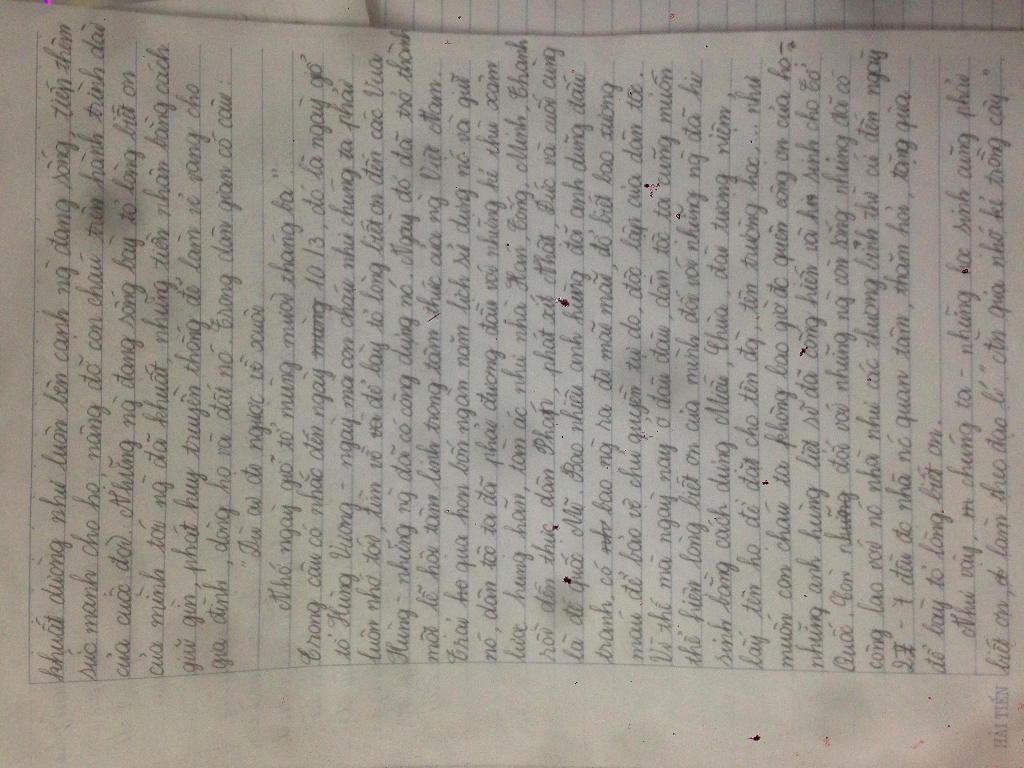 khuất dường như luôn bên cạnh ng đang sống, tiếp thêm
sức mạnh cho họ, nâng đỡ con cháu trên hành trình dài
của cuộc đời. Những ng đang sống bày tỏ lòng biết ơn
của mình tới ng đã khuất những tiền nhân bằng cách
giữ gìn, phát huy truyền thống để làm rẻ vang cho
gia đình, dòng họ và đất nc. Trong dân gian có câu:
"Dù ai đi ngược về xuôi
Nhớ ngày giỗ tổ mùng mười tháng ba".
Trong câu có nhắc đến ngày 10/3, đó là ngày giỗ
tổ Hùng Vương - ngày mà con cháu như chúng ta phải
luôn nhớ tới, tìm về và để bày tỏ lòng biết ơn đến các Vua
Hùng - những ng đã có công dựng nc. Ngày đó đã trở thành
một lễ hội tâm linh trong tâm thức của ng Việt Nam.
Trải qua hơn bốn ngàn năm lịch sử dựng nc và giữ
nc, dân tộc ta đã phải đương đầu với những kẻ thù xâm
lược hung hãn, tàn ác, như nhà Hán, Tống, Minh, Thanh
rồi đến thực dân Pháp, phát xít Nhật, Đức và cuối cùng
là đế quốc Mĩ. Bao nhiêu anh hùng đã anh dũng đấu
tranh, có bao ng ra đi mãi mãi, đổ biết bao xương
máu để bảo vệ chủ quyền tự do, độc lập của dân tộc.
Vì thế mà ngày nay ở đâu đâu, dân tộc ta cũng muốn
thể hiện lòng biết ơn của mình đối với những ng đã hi
sinh bằng cách dựng Miếu, Chùa, đài tương niệm
lấy tên họ để đặt cho tên đg, tên trường học... như
muốn con cháu ta không bao giờ đc quên công ơn của họ -
những anh hùng lịch sử đã cống hiến và hi sinh cho Tổ
Quốc. Còn đối với những ng còn sống nhưng đã có
công lao với nc nhà như các thương binh thì cứ đến ngày
27 - 7 đều đc nhà nc quan tâm, thăm hỏi, tặng quà
để bày tỏ lòng biết ơn.
Như vậy, chúng ta - những học sinh cũng phải
biết ơn, làm theo đạo lí "Ăn quả nhớ kẻ trồng cây"
HẢI TIẾN